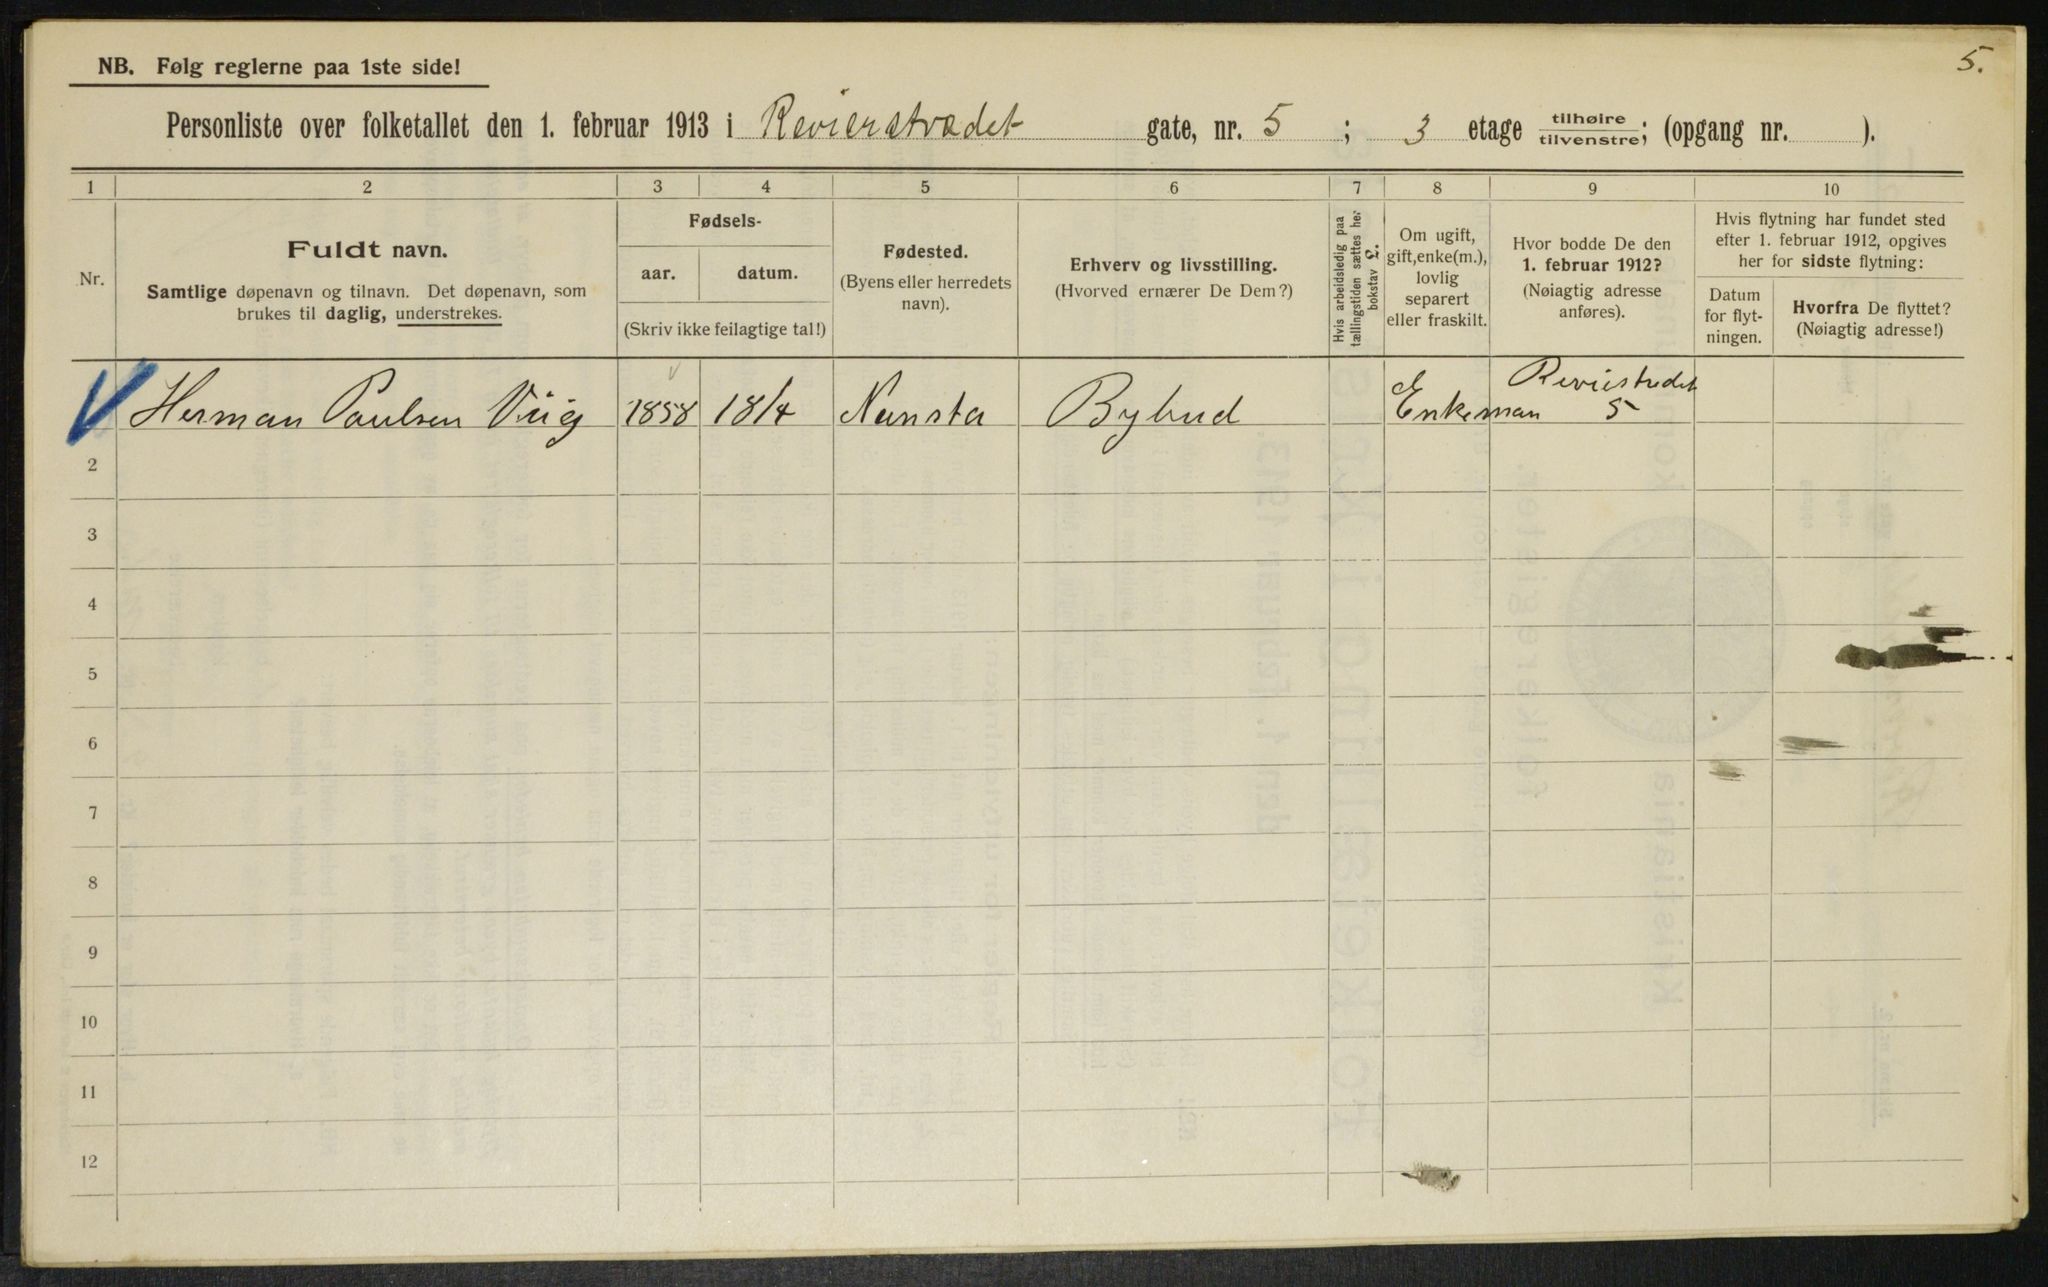 5.
NB. Følg reglerne paa 1ste side!
Personliste over folketallet den 1. februar 1913 i Revierstrædet gate, nr. 5 ; 3 etage tilhøire tilvenstre; (opgang nr. ).
1 2 3 4 5 6 7 8 9 10
Nr.
Fuldt navn.
Samtlige døpenavn og tilnavn. Det døpenavn, som
brukes til daglig, understrekes.
Fødsels-
aar. datum.
(Skriv ikke feilagtige tal!)
Fødested.
(Byens eller herredets
navn).
Erhverv og livsstilling.
(Hvorved ernærer De Dem?)
Hvis arbeidsledig paa
tællingstiden sættes her
bokstav L.
Om ugift,
gift, enke(m.),
lovlig
separert
eller fraskilt.
Hvor bodde De den
1. februar 1912?
(Nøiagtig adresse
anføres).
Hvis flytning har fundet sted
efter 1. februar 1912, opgives
her for sidste flytning:
Datum
for flyt-
ningen.
Hvorfra De flyttet?
(Nøiagtig adresse!)
Herman Paulsen 1858 18/4 Nansta Bybud Enkeman Reviestredet 5
2
3
4
5
6
7
8
9
10
11
12